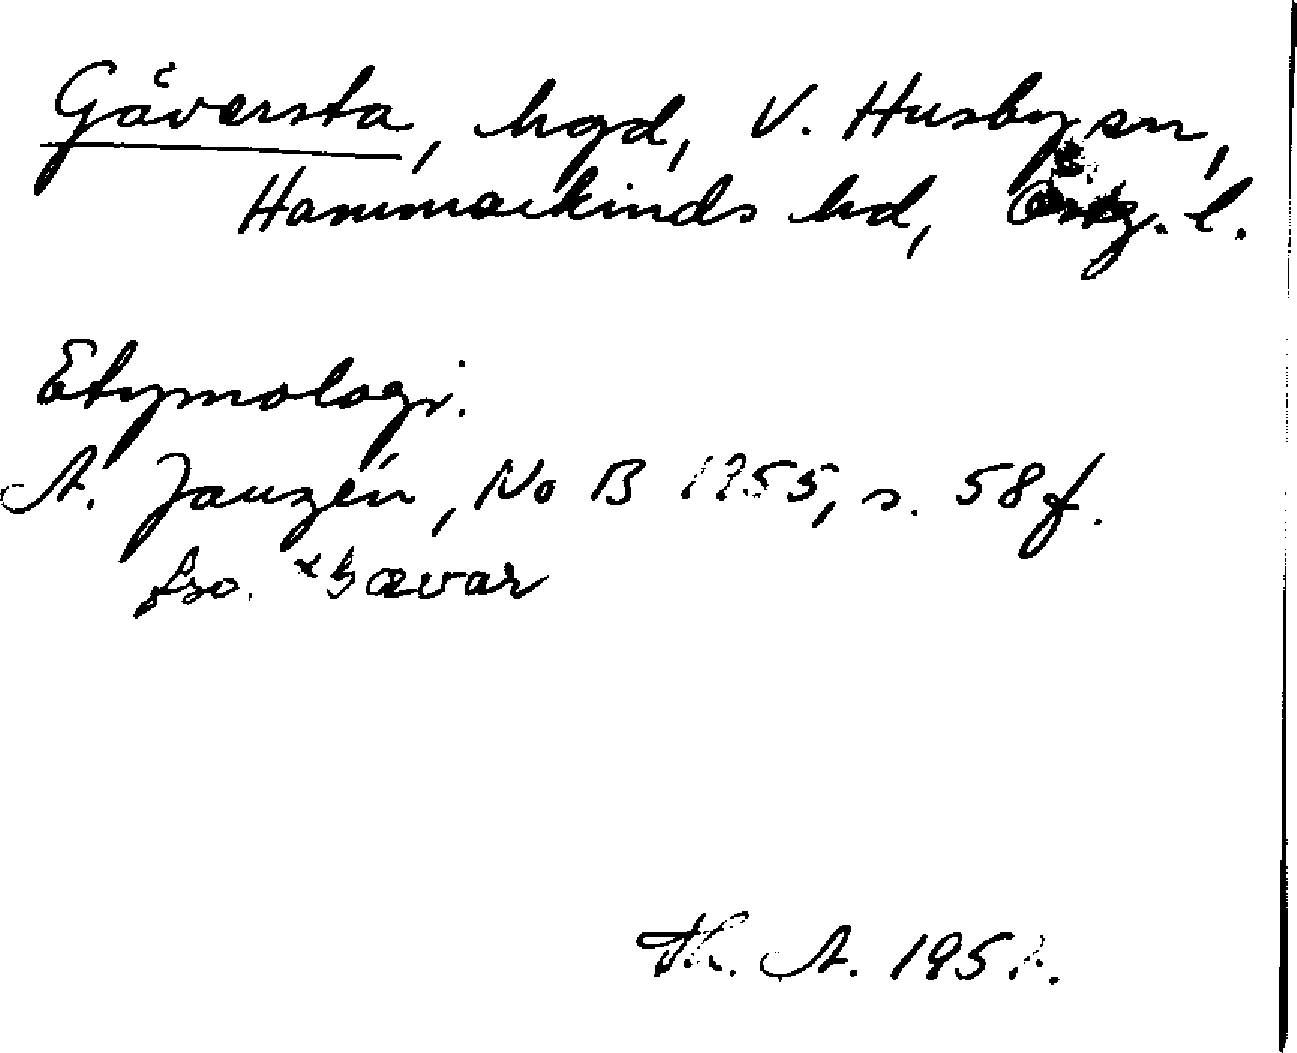 Gäversta, hgd, V. Husby sn,
Hammarkinds hd, Östg. l.
Etymologi.
A. Janzén, NoB 1955, s. 58 f.
fso. *Gævar
Th. A.